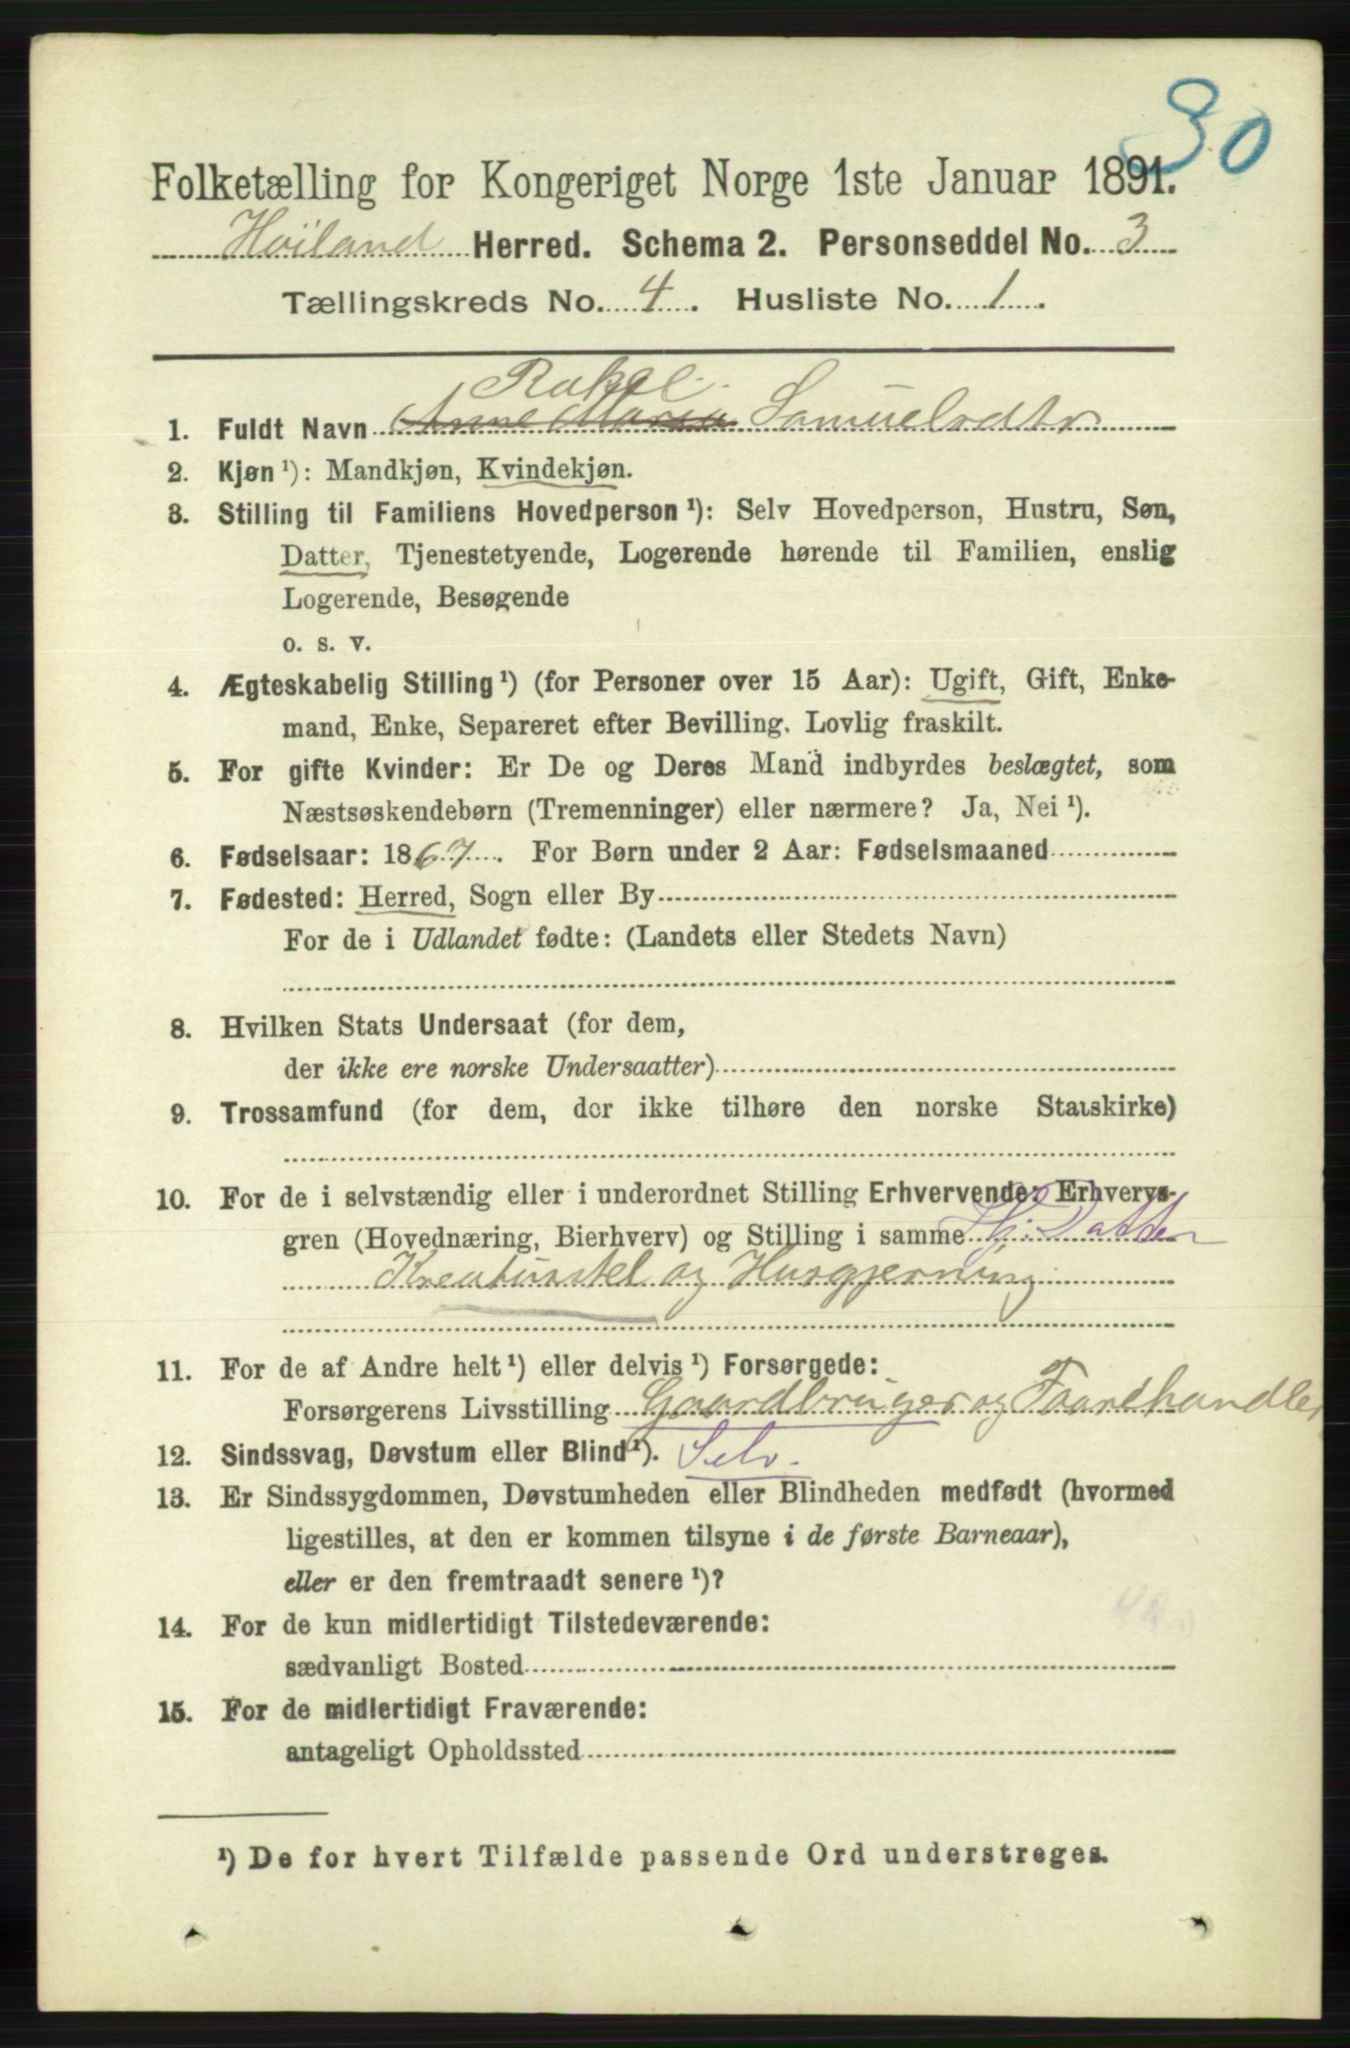 30
Folketælling for Kongeriget Norge 1ste Januar 1891.
Høiland Herred. Schema 2. Personseddel No. 3
Tællingskreds No. 4. Husliste No. 1.
Rakel
1. Fuldt Navn Anne Maria Samuelsdtr
2. Kjøn¹): Mandkjøn, Kvindekjøn.
3. Stilling til Familiens Hovedperson¹): Selv Hovedperson, Hustru, Søn,
Datter, Tjenestetyende, Logerende hørende til Familien, enslig
Logerende, Besøgende
o. s. v.
4. Ægteskabelig Stilling¹) (for Personer over 15 Aar): Ugift, Gift, Enke-
mand, Enke, Separeret efter Bevilling. Lovlig fraskilt.
5. For gifte Kvinder: Er De og Deres Mand indbyrdes beslægtet, som
Næstsøskendebørn (Tremenninger) eller nærmere? Ja, Nei¹).
6. Fødselsaar: 1867. For Børn under 2 Aar: Fødselsmaaned
7. Fødested: Herred, Sogn eller By
For de i Udlandet fødte: (Landets eller Stedets Navn)
8. Hvilken Stats Undersaat (for dem,
der ikke ere norske Undersaatter)
9. Trossamfund (for dem, der ikke tilhøre den norske Statskirke)
10. For de i selvstændig eller i underordnet Stilling Erhvervende: Erhvervs-
gren (Hovednæring, Bierhverv) og Stilling i samme Hj: Datter
Kreaturstel og Husgjerning
11. For de af Andre helt¹) eller delvis¹) Forsørgede:
Forsørgerens Livsstilling Gaardbruger og Faarehandler
12. Sindssvag, Døvstum eller Blind¹). Selv.
13. Er Sindssygdommen, Døvstumheden eller Blindheden medfødt (hvormed
ligestilles, at den er kommen tilsyne i de første Barneaar),
eller er den fremtraadt senere¹)?
14. For de kun midlertidigt Tilstedeværende:
sædvanligt Bosted
15. For de midlertidigt Fraværende:
antageligt Opholdssted
¹) De for hvert Tilfælde passende Ord understreges.